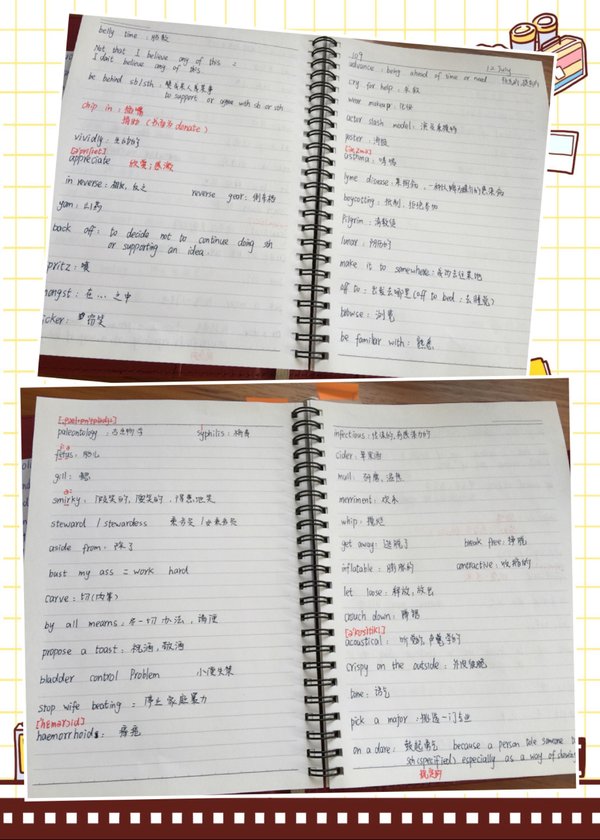 belly time : 肠敷
Not that I believe any of this =
I don't believe any of this
be behind sb/sth : 赞成某人或某事
to support or agree with sb or sth
chip in : 插嘴
捐助 (书面为 donate)
vividly : 生动的
appreciate 欣赏;感激
in reverse : 相反, 反之 reverse gear : 倒车档
yam : 山药
back off : to decide not to continue doing sth
or supporting an idea
pritz : 喷
mongst : 在 ... 之中
icker : 窃笑
109 12 July
advance : being ahead of time or need
cry for help : 求救
wear makeup : 化妆
actor slash model : 演员兼模特
poster : 海报
['æzmə]
asthma : 哮喘
lyme disease : 莱姆病, 一种以蜱为媒介的感染病
boycotting : 抵制, 拒绝参加
Pilgrim : 清教徒
lunar : 阴历的
make it to somewhere : 成功去往某地
off to : 出发去哪里 (off to bed : 去睡觉)
browse : 浏览
be familiar with : 熟悉
paleontology : 古生物学 Syphilis : 梅毒
fetus : 胎儿
gill : 鳃
smirky : 假笑的, 傻笑的, 得意地笑
steward / stewardess 乘务员 / 女乘务员
aside from : 除了
bust my ass = work hard
carve : 切 (肉等)
by all mearns : 尽一切办法, 请便
propose a toast : 祝酒, 敬酒
bladder control Problem 小便失禁
stop wife beating : 停止家庭暴力
haemorrhoids : 痔疮
infectious : 传染的, 有感染力的
cider : 苹果酒
mull : 研磨, 温热
merriment : 欢乐
whip : 搅拌
get away : 逃脱了 break free : 挣脱
inflatable : 膨胀的 contractive : 收缩的
let loose : 释放, 放出
crouch down : 蹲踞
acoustical : 听觉的, 声学的
crispy on the outside : 外皮很脆
tone : 语气
pick a major : 挑选一门专业
on a dare : 鼓起勇气 because a person tele someone
sth (specified) especially as a way of showing
规定的